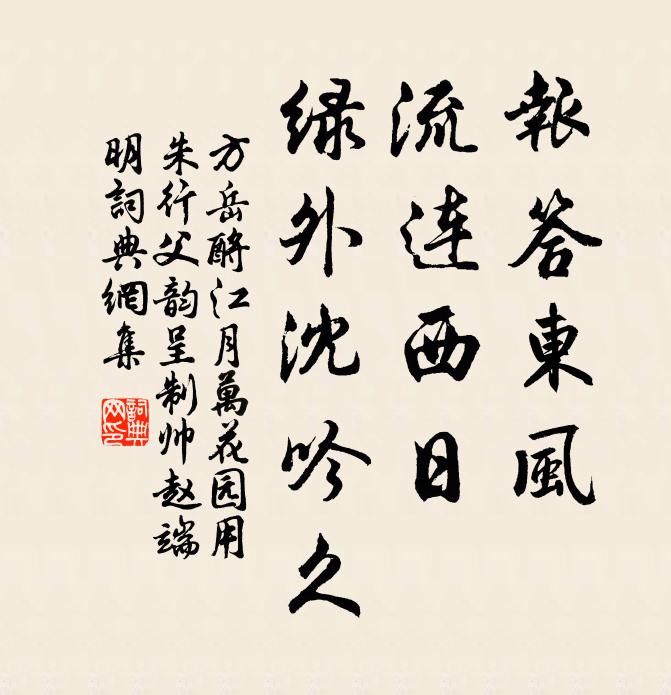 報答東風
流连西日
緑外沈吟久
方岳酹江月萬花园用
朱行父韵呈制帅赵端
明詞典網集
詞典網印